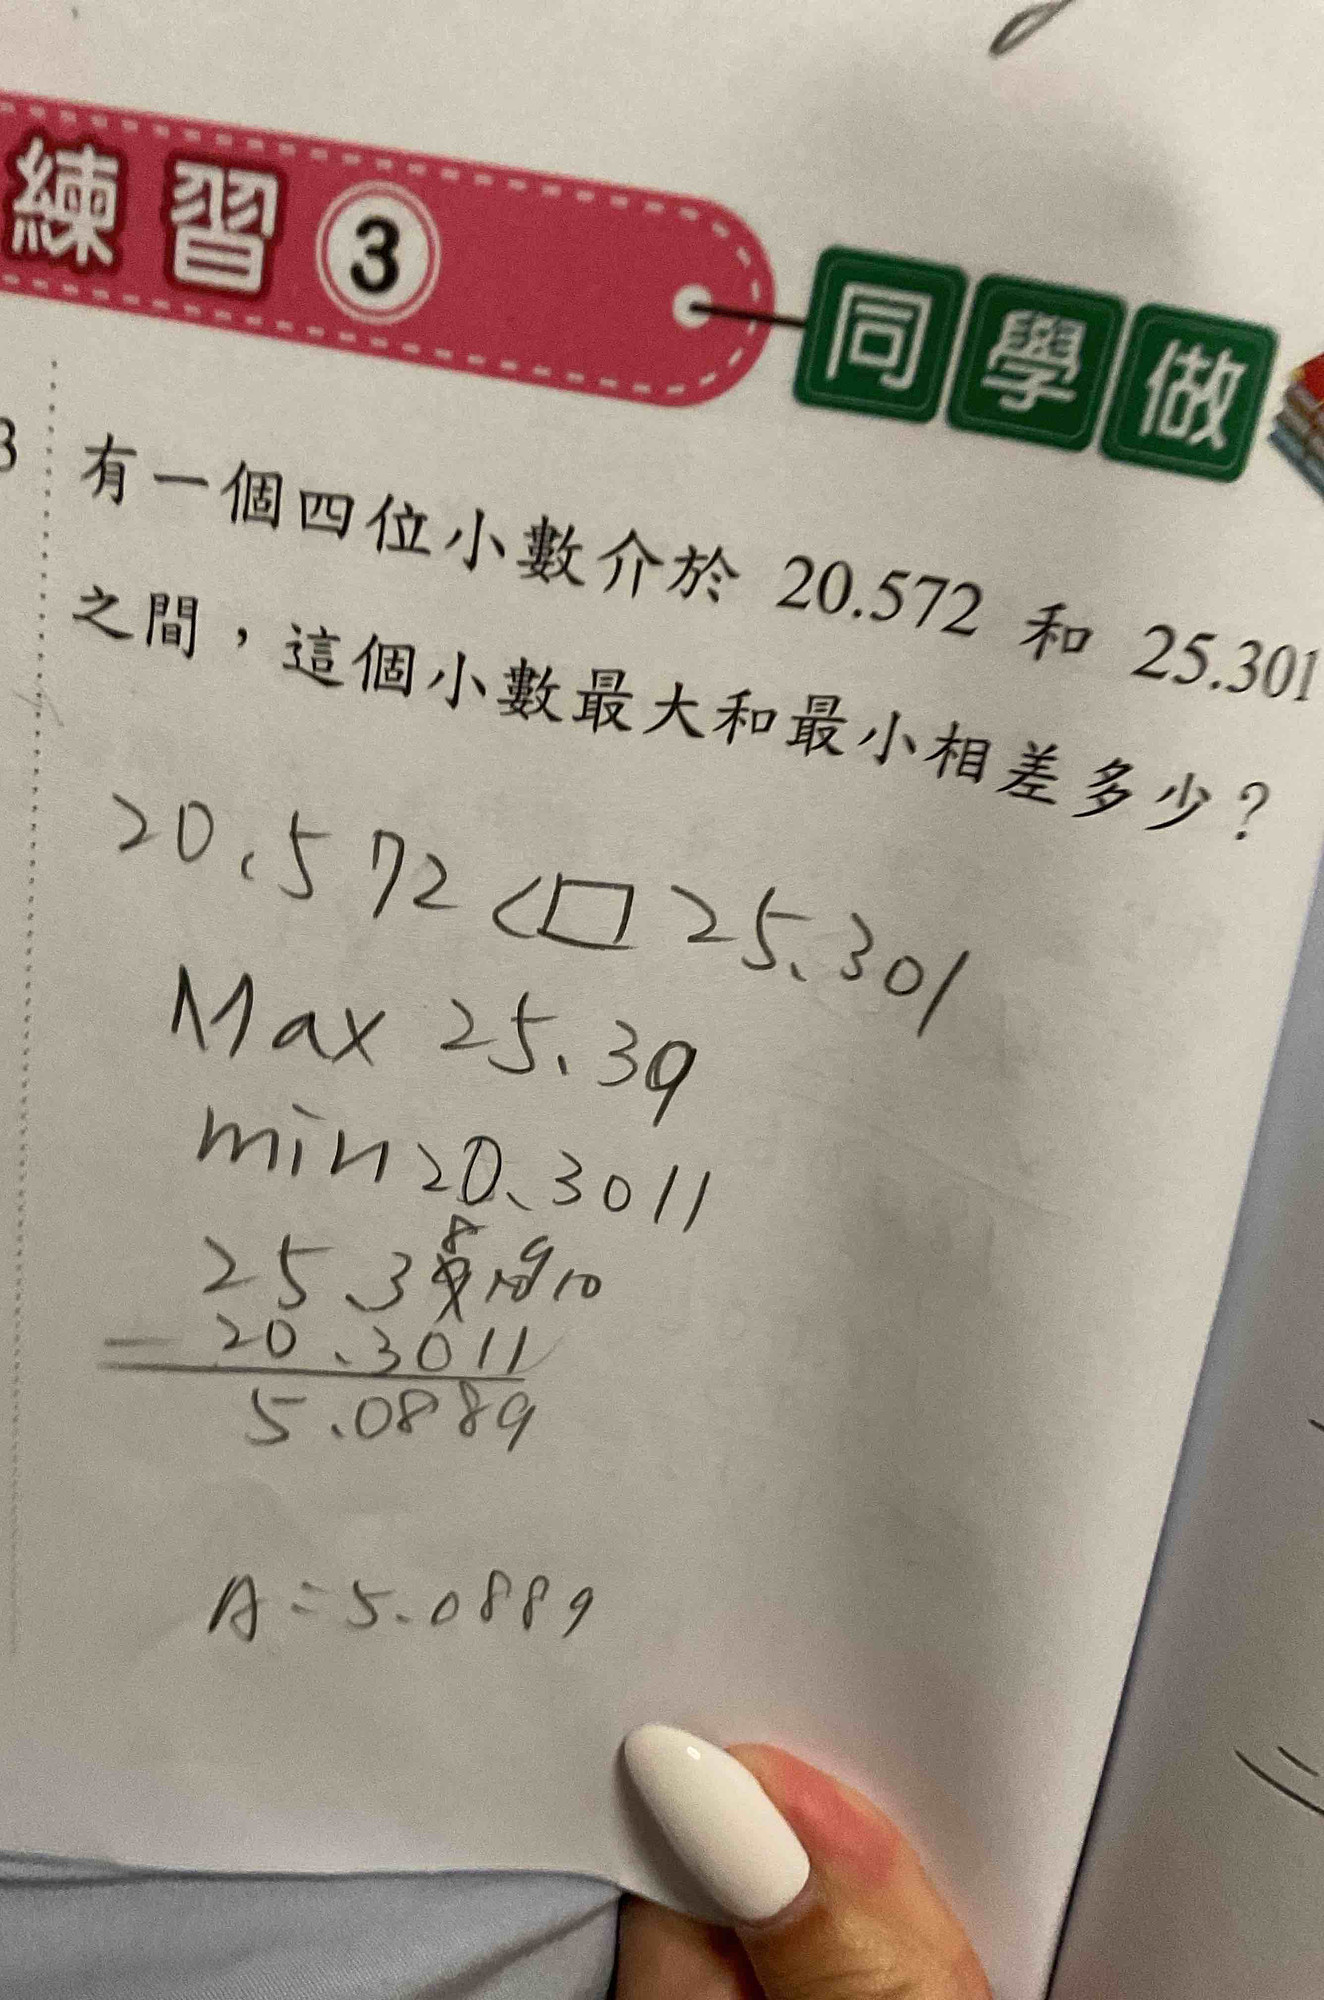 練習3 同學做
3 有一個四位小數介於 20.572 和 25.301
之間，這個小數最大和最小相差多少？
20.572<□25.301
Max 25.39
min 20.3011
8 9
25.391010
- 20.3011
5.0889
A=5.0889